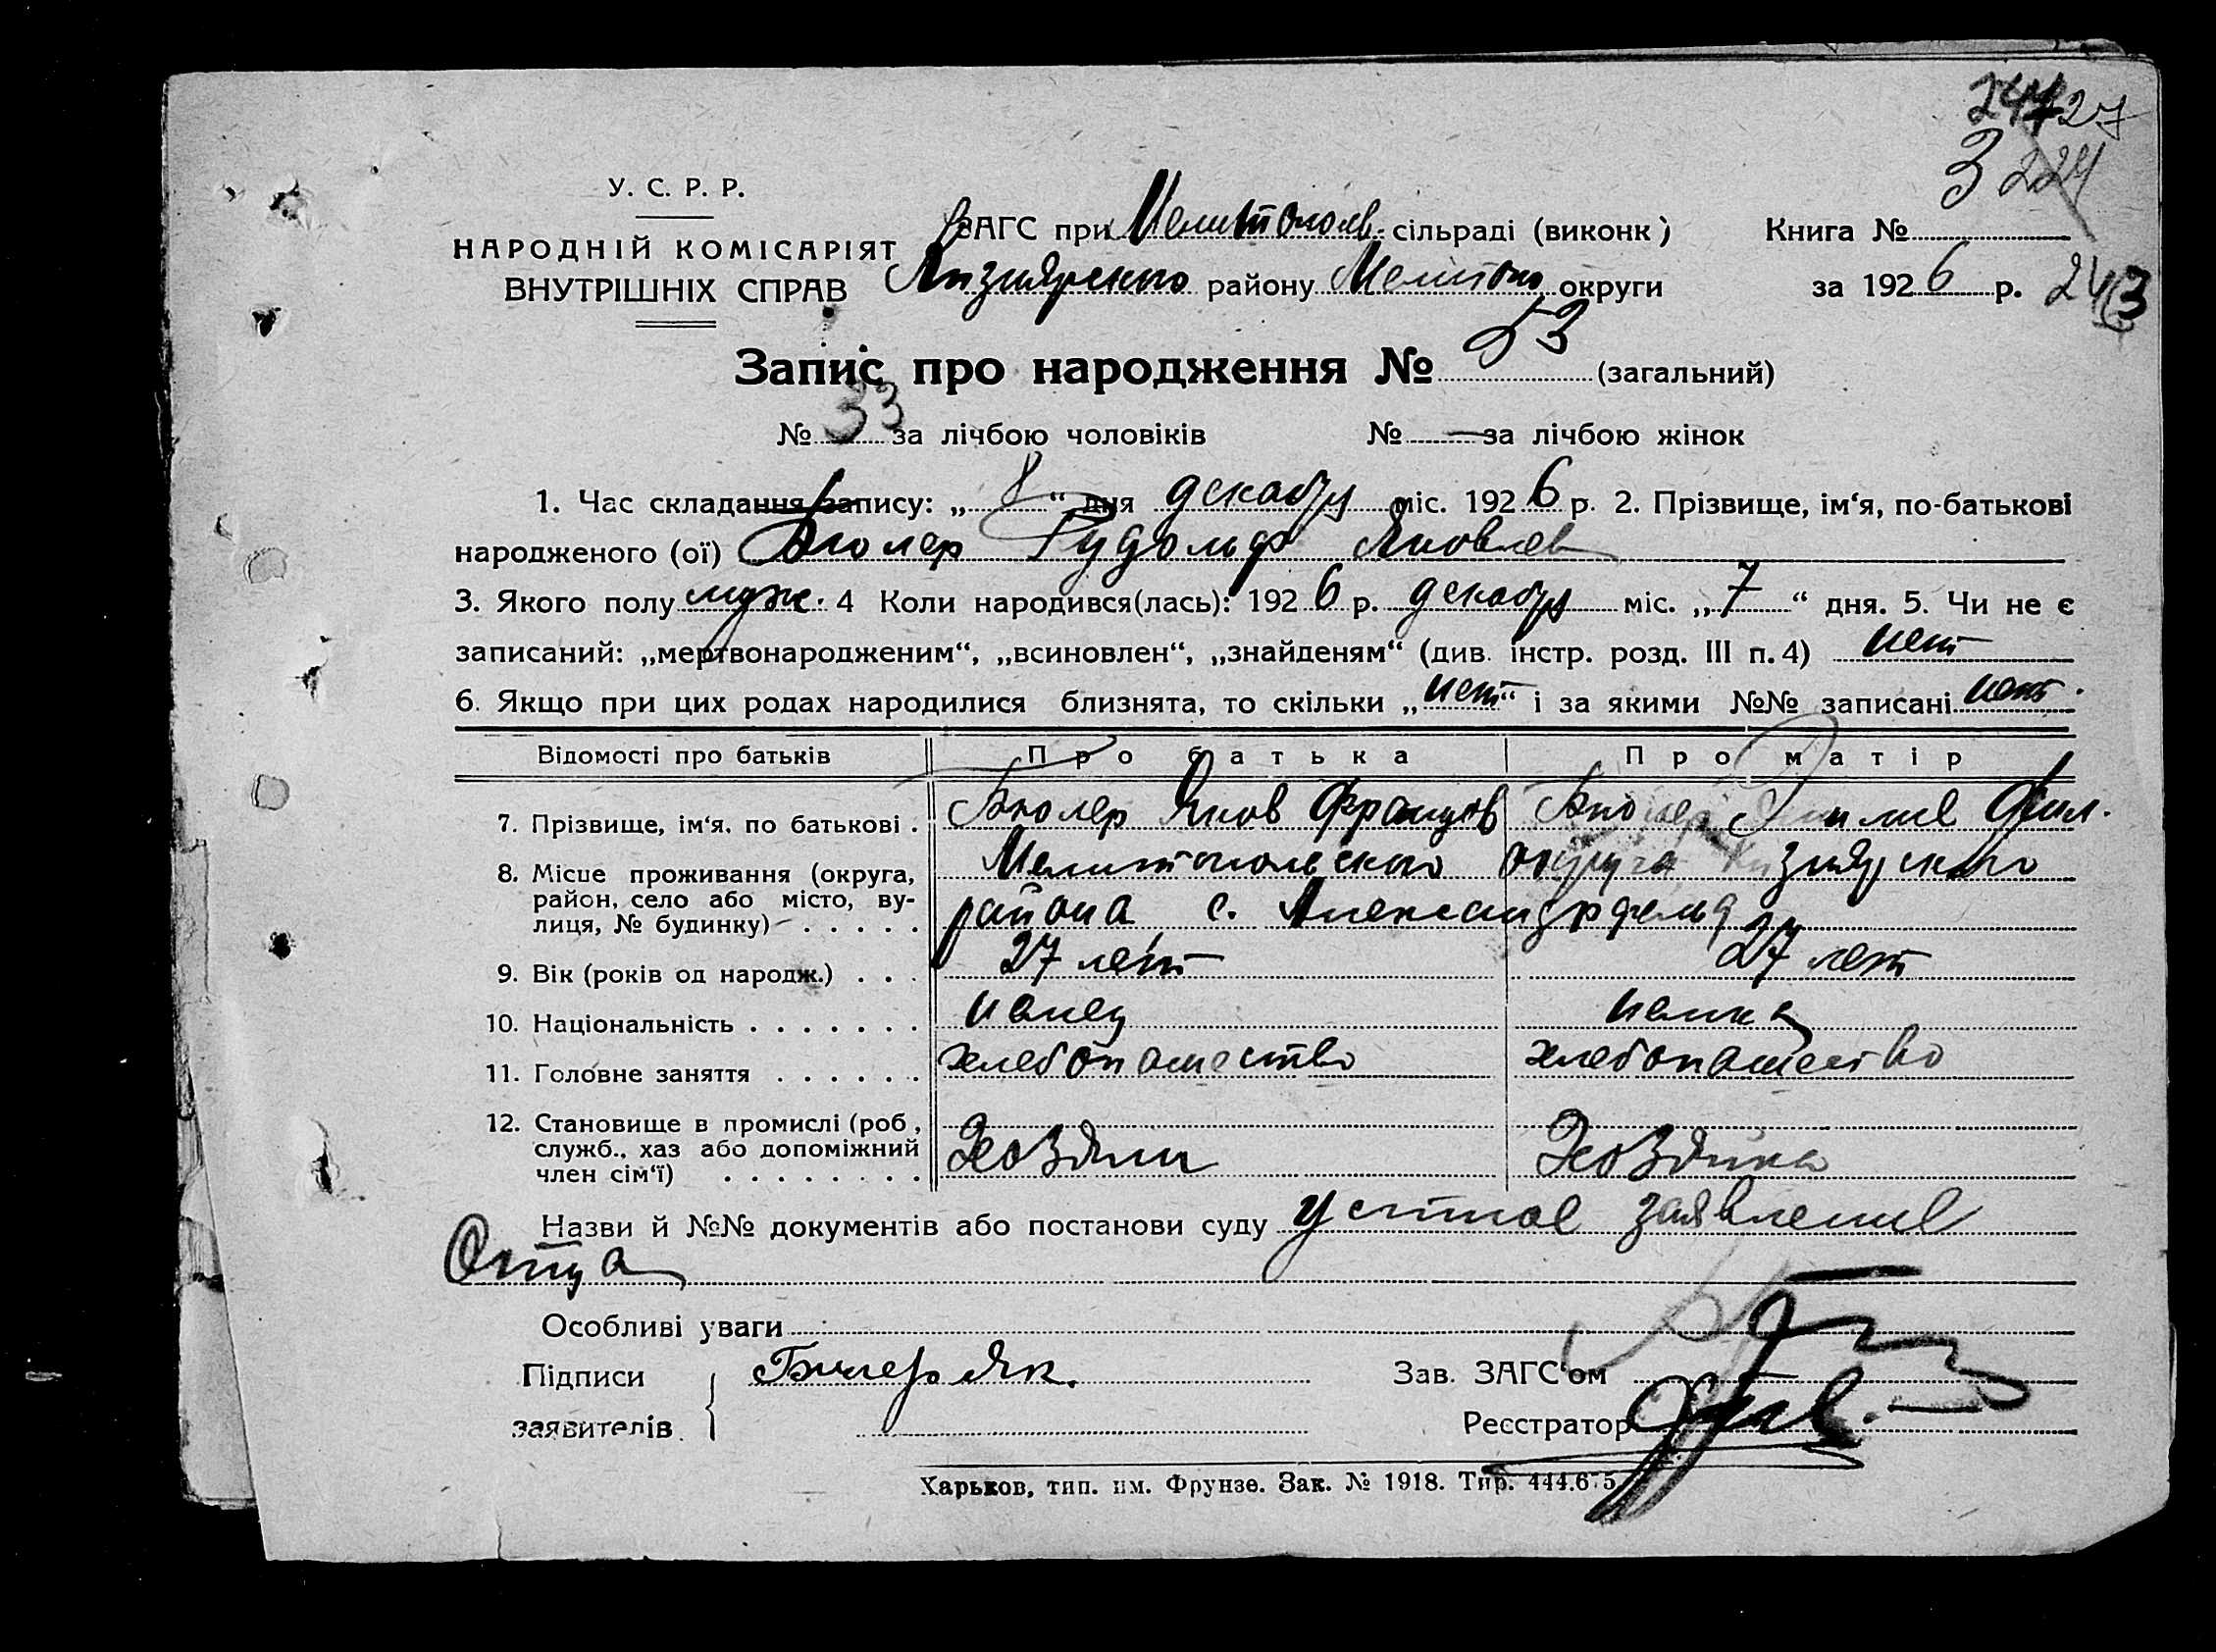 27
3 224
У. С. Р. Р.
НАРОДНІЙ КОМІСАРІЯТ
ВНУТРІШНІХ СПРАВ
ЗАГС при сільраді (виконк)
району Мелитопо округи
Книга №
за 1926 р. 243
Запис про народження № 53 (загальний)
№ 33 за лічбою чоловіків № — за лічбою жінок
1. Час складання запису: „8“ дня декабря міс. 1926 р. 2. Прізвище, ім‘я, по-батькові
народженого (ої) Бюлер Рудольф Яковлев
3. Якого полу муж. 4 Коли народився(лась): 1926 р. декабря міс. „7“ дня. 5. Чи не є
записаний: „мертвонародженим“, „всиновлен“, „знайденям“ (див. інстр. розд. III п. 4) нет
6. Якщо при цих родах народилися близнята, то скільки „нет“ і за якими №№ записані нет.
Відомості про батьків Про батька Про матір
7. Прізвище, ім‘я, по батькові . Бюлер Яков Францов Бюлер Фил.
8. Місце проживання (округа, район, село або місто, вулиця, № будинку) . . . . . Мелитопольского округа
района с. Александрфельд
9. Вік (років од народж.) . . . 27 лет 27 лет
10. Національність . . . . . . . немец немка
11. Головне заняття . . . . . . хлебопашество хлебопашество
12. Становище в промислі (роб., служб., хаз або допоміжний член сім‘ї) . . . . . . . . Хозяин Хозяйка
Назви й №№ документів або постанови суду устное заявление
Отца
Особливі уваги
Підписи заявителів Бюлер Як.
Зав. ЗАГС‘ом
Реєстратор
Харьков, тип. им. Фрунзе. Зак. № 1918. Тир. 444.675.